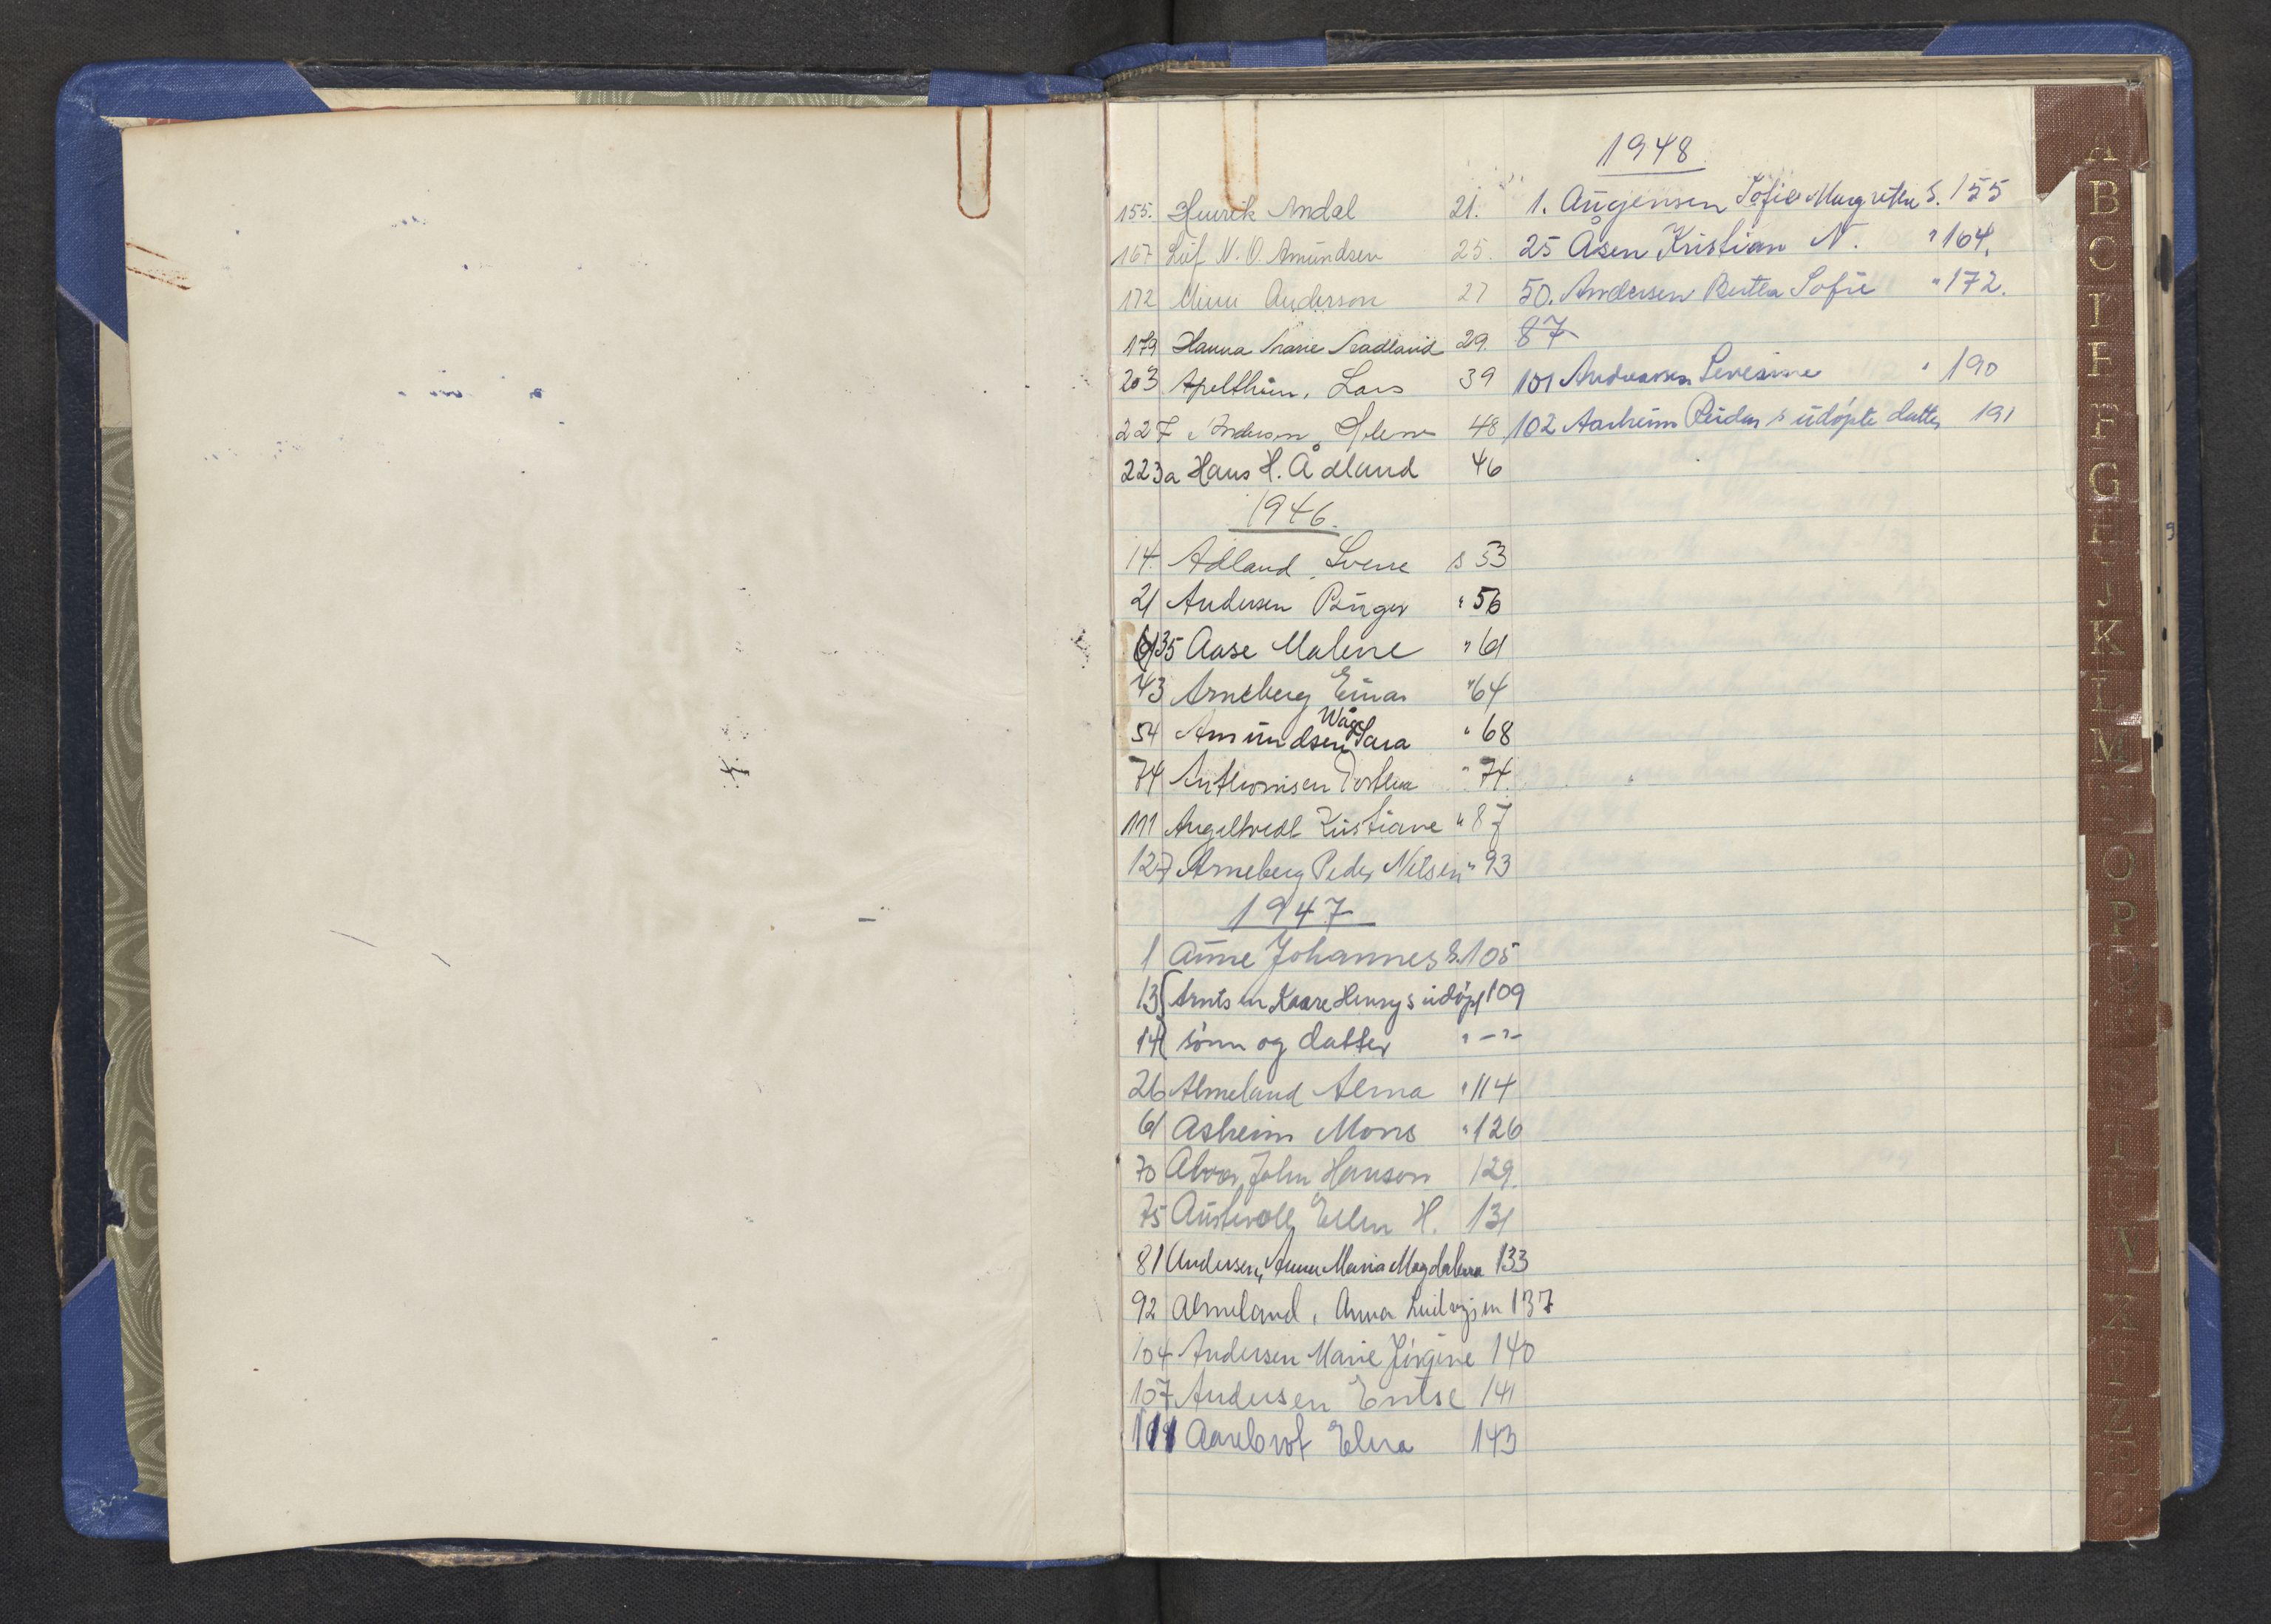 155. Henrik Andal 21.
167 Leif N. O. Amundsen 25.
172 Minni Anderson 27
179 Hanna Marie Aadland 29.
203 Apelthun, Lars 39
227 Anderson, Helene 48
223a Hans H. Ådland 46
1946.
14. Adland, Sverre s 53
21 Andersen Birger " 56
35 Aase Malene " 61
43 Arneberg Einar " 64
54 Amundsen Våge Sara " 68
74 Anthonisen Dorthea " 74.
111 Angeltvedt Kristiane " 87
127 Arneberg Peder Nilsen " 93
1947
1 Aune Johannes s. 105
13 Arntsen Kaare Henrys udöpt 109
14 sönn og datter " - " -
26 Almeland Alma " 114
61 Asheim Mons " 126
70 Alvær, John Hanson 129.
75 Austevoll, Ellen H. 131
81 Andersen, Anna Maria Magdalena 133
92 Almeland, Anna Ludvigsen 137
104 Andersen Marie Jörgine 140
107 Andersen 141
111 Aarebrot Elna 143
1948
1. Augensen Sofie Margrethe S. 155
25 Åsen Kristian N. " 164.
50. Andersen Berta Sofie " 172.
87
101 Andreassen Severine " 190
102 Aarheim Reidar s udöpte datter 191
A
B
C
D
E
F
G
H
J
K
L
M
N
O
P